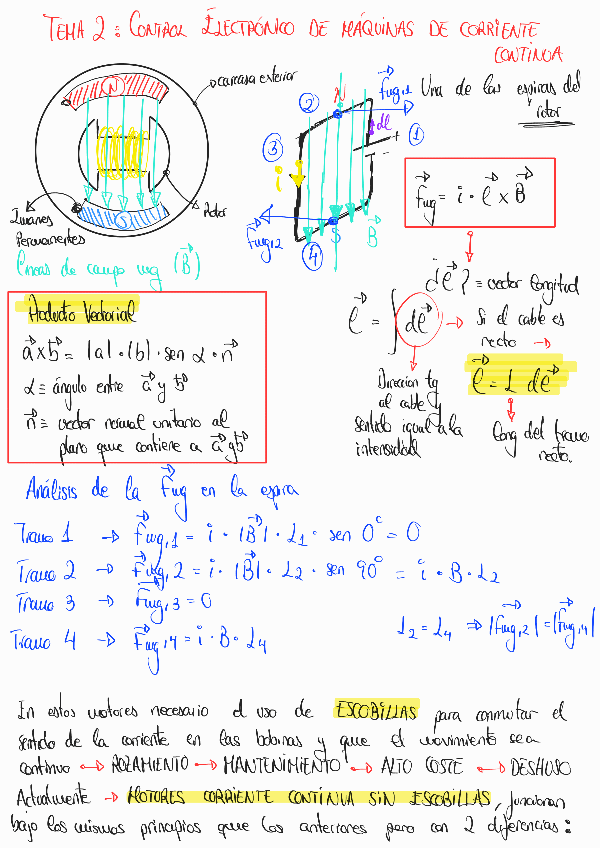 TEMA 2: CONTROL ELECTRÓNICO DE MÁQUINAS DE CORRIENTE
CONTINUA
N
carcasa exterior
S
Rotor
Imanes
Permanentes
Líneas de campo mg (B⃗)
F⃗mg,1
Una de las espiras del
rotor
N
②
dl
①
③
i
F⃗mg,2
④
S
B⃗
F⃗mg = i · l⃗ x B⃗
dl⃗? ≡ vector longitud
l⃗ = ∫ dl⃗ → Si el cable es
recto →
l⃗ = L dl⃗
Direccion tg
al cable y
sentido igual a la
intensidad
Long del tramo
recto.
Producto Vectorial
a⃗ x b⃗ = |a| · |b| · sen α · n⃗
α ≡ ángulo entre a⃗ y b⃗
n⃗ ≡ vector normal unitario al
plano que contiene a a⃗ y b⃗
Análisis de la F⃗mg en la espira
Tramo 1 → F⃗mg,1 = i · |B⃗| · L1 · sen 0° = 0
Tramo 2 → F⃗mg,2 = i · |B⃗| · L2 · sen 90° = i · B · L2
Tramo 3 → F⃗mg,3 = 0
Tramo 4 → F⃗mg,4 = i · B · L4
L2 = L4 ⇒ |F⃗mg,2| = |F⃗mg,4|
En estos motores necesario el uso de ESCOBILLAS para conmutar el
sentido de la corriente en las bobinas y que el movimiento sea
continuo ↔ ROZAMIENTO ↔ MANTENIMIENTO ↔ ALTO COSTE ↔ DESHUSO
Actualmente → MOTORES CORRIENTE CONTINUA SIN ESCOBILLAS, funcionan
bajo los mismos principios que los anteriores pero con 2 diferencias: